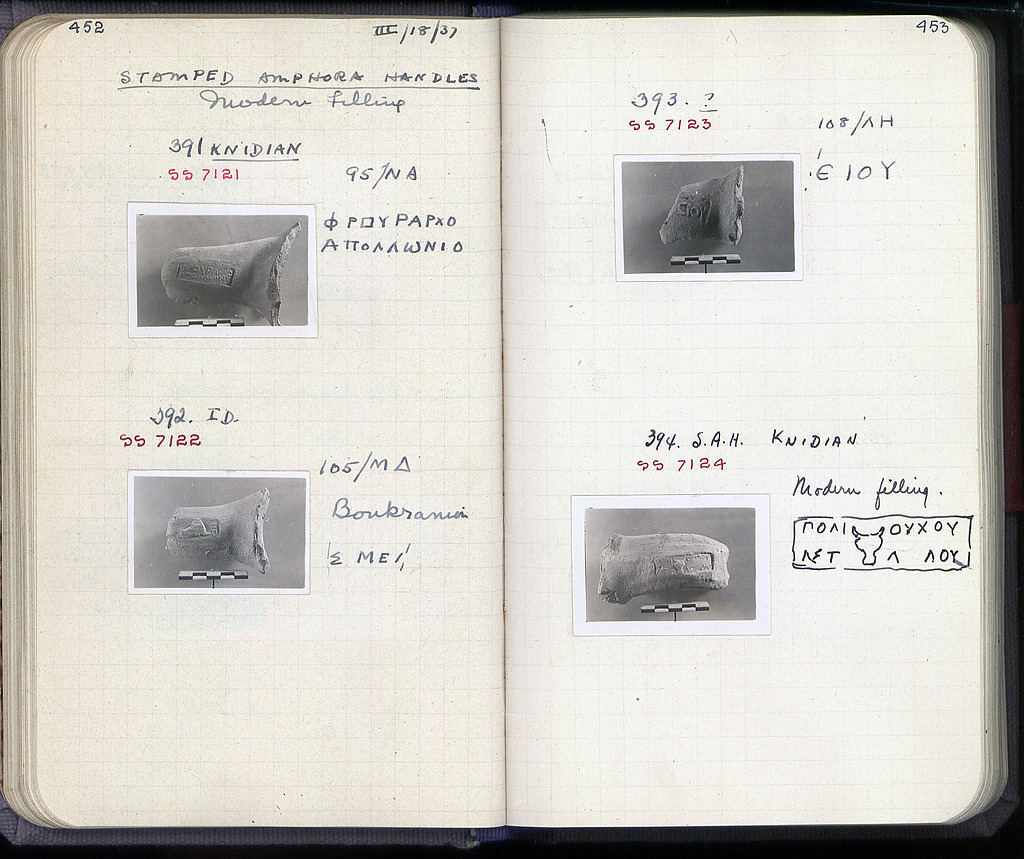 452
III/18/37
STAMPED AMPHORA HANDLES
Modern filling
391 KNIDIAN
SS 7121
95/ΝΑ
ΦΡΟΥΡΑΡΧΟ
ΑΠΟΛΛΩΝΙΟ
392. ID.
SS 7122
105/ΜΔ
Boukranion
Σ ΜΕΙ
453
393. ?
SS 7123
108/ΛΗ
Є ΙΟΥ
394. S.A.H. KNIDIAN
SS 7124
Modern filling.
ΠΟΛΙ ΟΥΧΟΥ
ΛΕΤ Λ ΛΟΥ